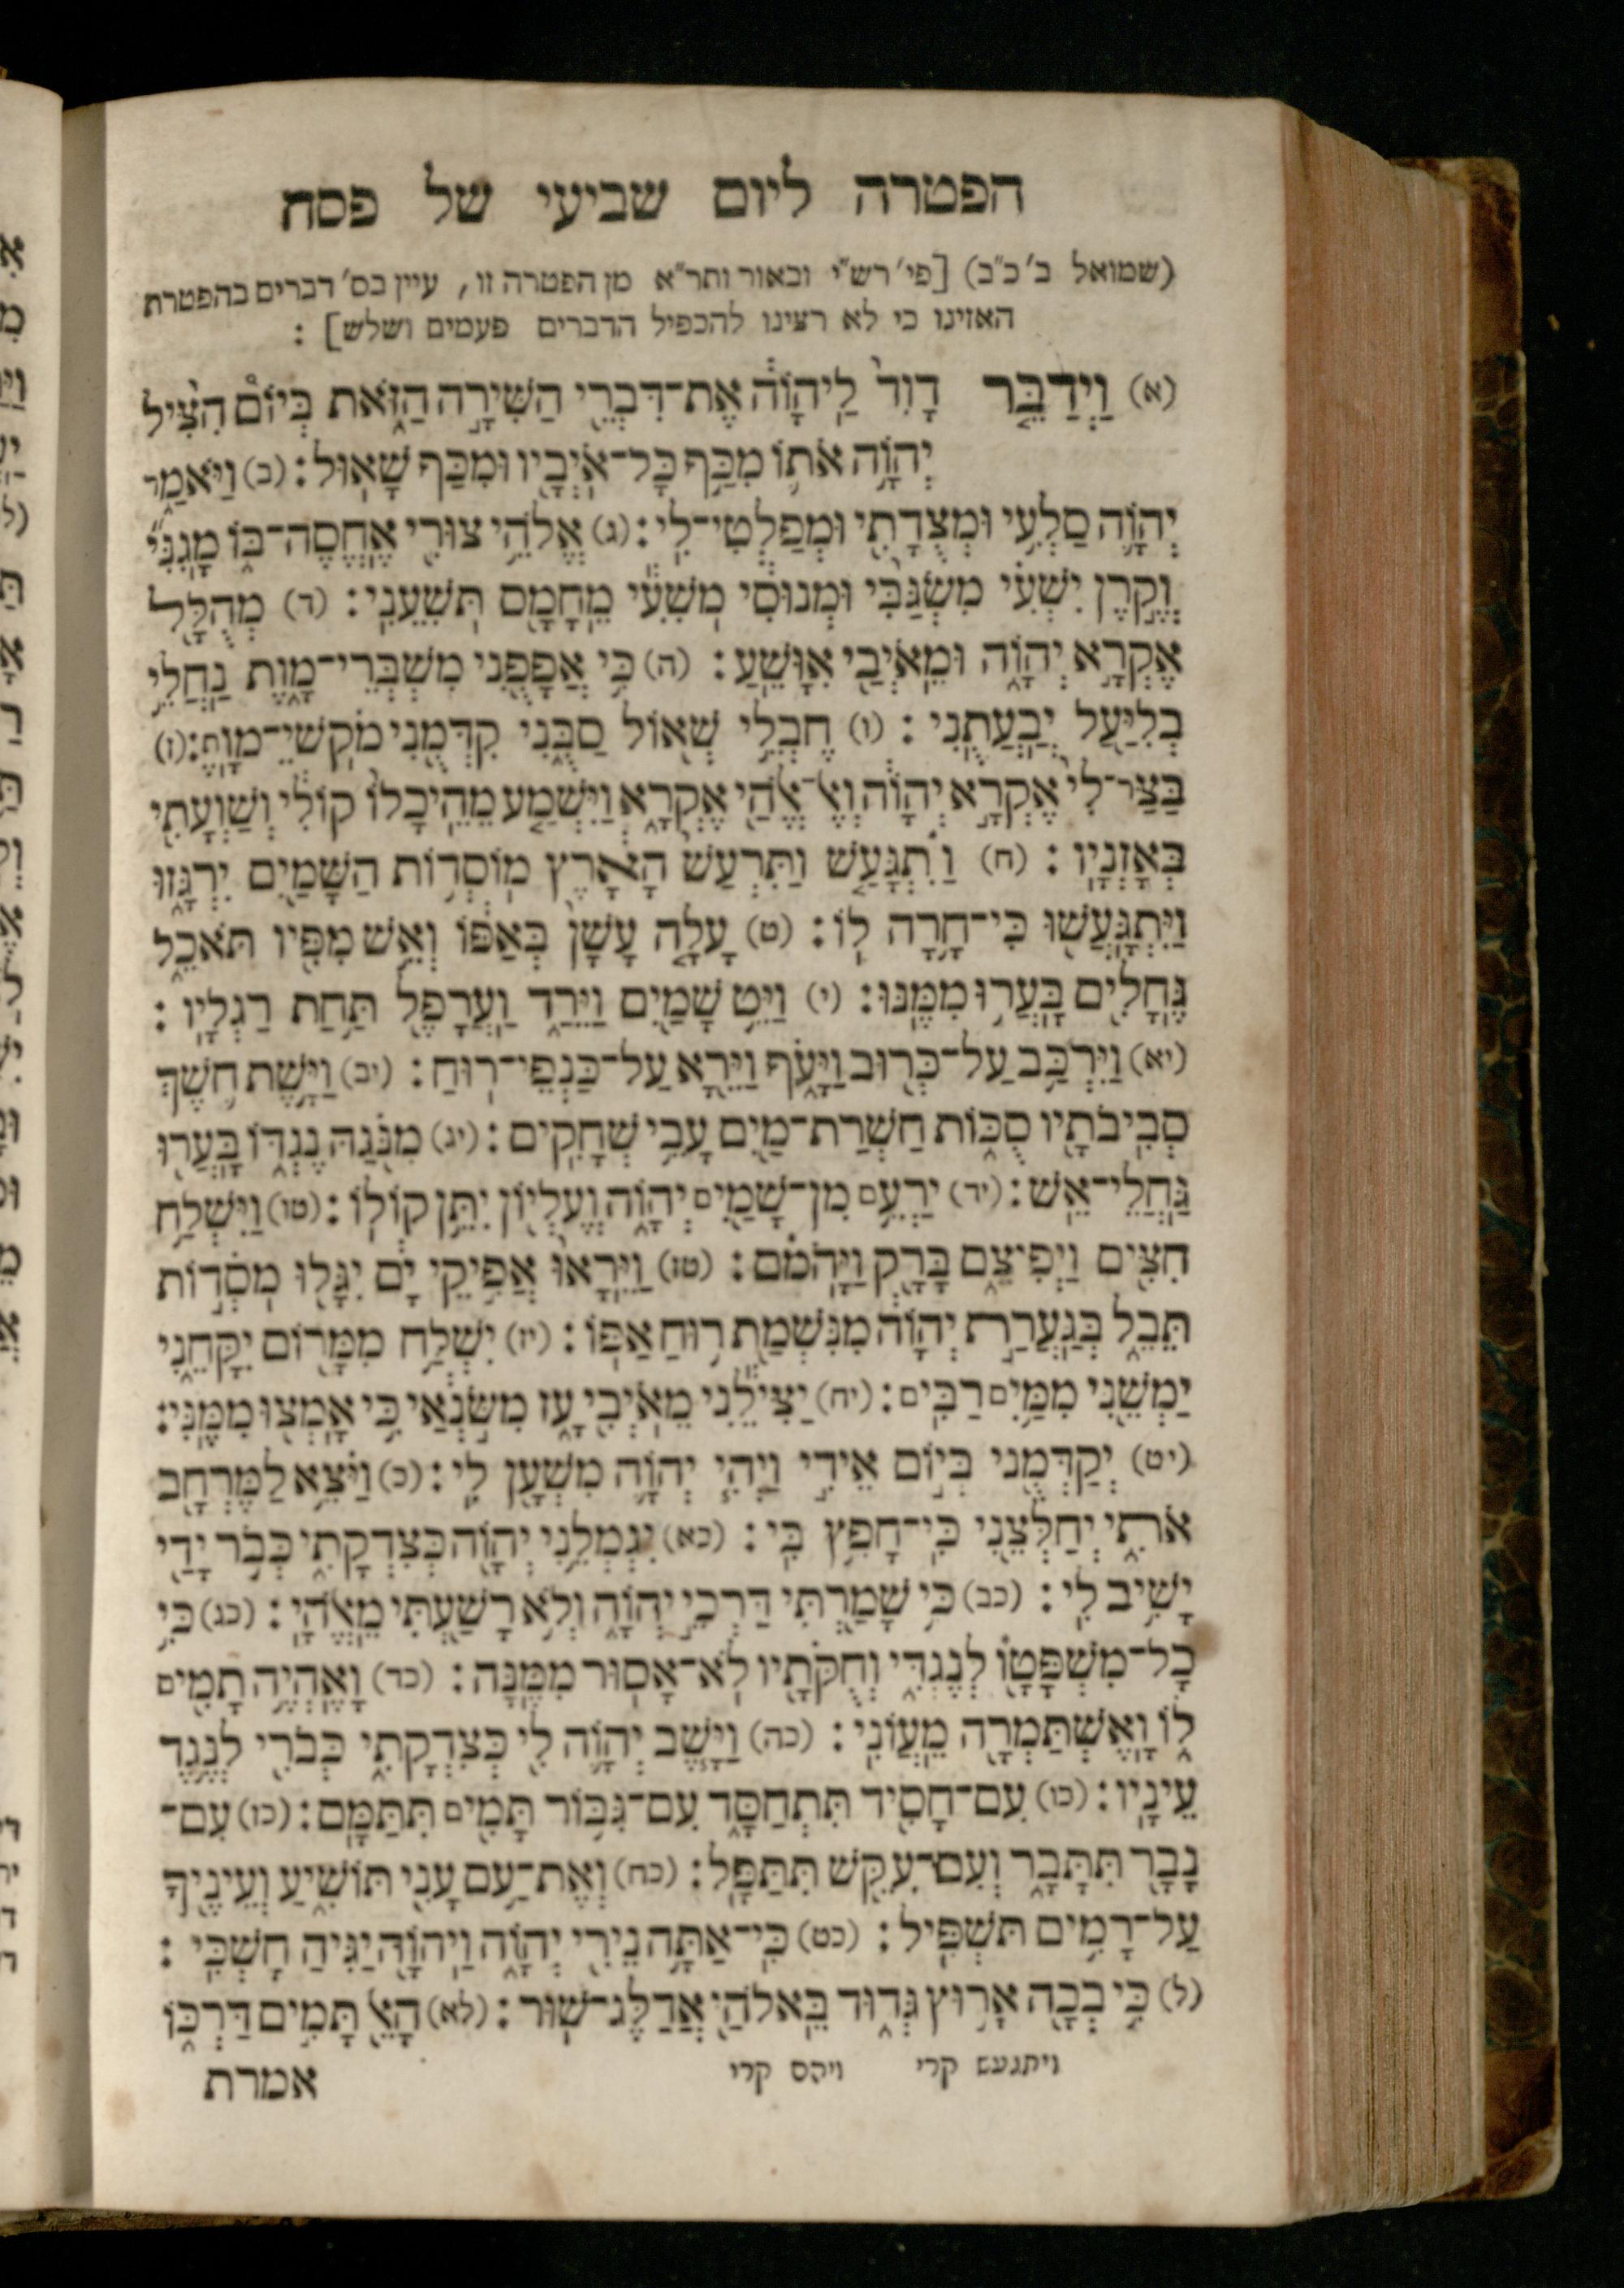 הפטרה ליום שביעי של פסח
(שמואל ב׳ כ״ב) [פי׳ רש״י ובאור ותר״א מן הפטרה זו, עיין בס׳ דברים בהפטרת
האזינו כי לא רצינו להכפיל הדברים פעמים ושלש]:
(א) וַיְדַבֵּ֤ר דָּוִד֙ לַֽיהוָ֔ה אֶת־דִּבְרֵ֖י הַשִּׁירָ֣ה הַזֹּ֑את בְּיוֹם֩ הִצִּ֨יל
יְהוָ֥ה אֹת֛וֹ מִכַּ֥ף כָּל־אֹיְבָ֖יו וּמִכַּ֥ף שָׁאֽוּל׃ (ב) וַיֹּאמַ֑ר
יְהוָ֛ה סַלְעִ֥י וּמְצֻדָתִ֖י וּמְפַלְטִי־לִֽי׃ (ג) אֱלֹהֵ֥י צוּרִ֖י אֶחֱסֶה־בּ֑וֹ מָגִנִּ֞י
וְקֶ֣רֶן יִשְׁעִ֗י מִשְׂגַּבִּי֙ וּמְנוּסִ֔י מֹשִׁעִ֕י מֵחָמָ֖ס תֹּשִׁעֵֽנִי׃ (ד) מְהֻלָּ֖ל
אֶקְרָ֣א יְהוָ֑ה וּמֵאֹיְבַ֖י אִוָּשֵֽׁעַ׃ (ה) כִּ֥י אֲפָפֻ֖נִי מִשְׁבְּרֵי־מָ֑וֶת נַחֲלֵ֥י
בְלִיַּ֖עַל יְבַעֲתֻֽנִי׃ (ו) חֶבְלֵ֥י שְׁא֖וֹל סַבֻּ֑נִי קִדְּמֻ֖נִי מֹֽקְשֵׁי־מָֽוֶת׃ (ז)
בַּצַּר־לִי֙ אֶקְרָ֣א יְהוָ֔ה וְאֶל־אֱלֹהַ֖י אֶקְרָ֑א וַיִּשְׁמַ֤ע מֵהֵֽיכָלוֹ֙ קוֹלִ֔י וְשַׁוְעָתִ֖י
בְּאָזְנָֽיו׃ (ח) וַ֯תִּגָּעַ֤שׁ וַתִּרְעַשׁ֙ הָאָ֔רֶץ מוֹסְד֥וֹת הַשָּׁמַ֖יִם יִרְגָּ֑זוּ
וַיִּֽתְגָּעֲשׁ֖וּ כִּֽי־חָ֥רָה לֽוֹ׃ (ט) עָלָ֤ה עָשָׁן֙ בְּאַפּ֔וֹ וְאֵ֥שׁ מִפִּ֖יו תֹּאכֵ֑ל
גֶּחָלִ֖ים בָּעֲר֥וּ מִמֶּֽנּוּ׃ (י) וַיֵּ֥ט שָׁמַ֖יִם וַיֵּרַ֑ד וַעֲרָפֶ֖ל תַּ֥חַת רַגְלָֽיו׃
(יא) וַיִּרְכַּ֥ב עַל־כְּר֖וּב וַיָּעֹ֑ף וַיֵּרָ֖א עַל־כַּנְפֵי־רֽוּחַ׃ (יב) וַיָּ֥שֶׁת חֹ֛שֶׁךְ
סְבִיבֹתָ֖יו סֻכּ֑וֹת חַֽשְׁרַת־מַ֖יִם עָבֵ֥י שְׁחָקִֽים׃ (יג) מִנֹּ֖גַהּ נֶגְדּ֑וֹ בָּעֲר֖וּ
גַּחֲלֵי־אֵֽשׁ׃ (יד) יַרְעֵ֥ם מִן־שָׁמַ֖יִם יְהוָ֑ה וְעֶלְי֖וֹן יִתֵּ֥ן קוֹלֽוֹ׃ (טו) וַיִּשְׁלַ֥ח
חִצִּ֖ים וַיְפִיצֵ֑ם בָּרָ֖ק וַיָּהֹמֽ֯ם׃ (טז) וַיֵּֽרָאוּ֙ אֲפִ֣יקֵי יָ֔ם יִגָּל֖וּ מֹסְד֣וֹת
תֵּבֵ֑ל בְּגַעֲרַ֣ת יְהוָ֔ה מִנִּשְׁמַ֖ת ר֥וּחַ אַפּֽוֹ׃ (יז) יִשְׁלַ֥ח מִמָּר֖וֹם יִקָּחֵ֑נִי
יַֽמְשֵׁ֖נִי מִמַּ֥יִם רַבִּֽים׃ (יח) יַצִּילֵ֕נִי מֵאֹיְבִ֖י עָ֑ז מִשֹּׂ֣נְאַ֔י כִּ֥י אָמְצ֖וּ מִמֶּֽנִּי׃
(יט) יְקַדְּמֻ֖נִי בְּי֣וֹם אֵידִ֑י וַיְהִ֧י יְהוָ֛ה מִשְׁעָ֖ן לִֽי׃ (כ) וַיֹּצֵ֥א לַמֶּרְחָ֖ב
אֹתִ֑י יְחַלְּצֵ֖נִי כִּי־חָ֥פֵץ בִּֽי׃ (כא) יִגְמְלֵ֥נִי יְהוָ֖ה כְּצִדְקָתִ֑י כְּבֹ֥ר יָדַ֖י
יָשִׁ֥יב לִֽי׃ (כב) כִּ֥י שָׁמַ֖רְתִּי דַּרְכֵ֣י יְהוָ֑ה וְלֹ֥א רָשַׁ֖עְתִּי מֵאֱלֹהָֽי׃ (כג) כִּ֥י
כָל־מִשְׁפָּטָ֖ו לְנֶגְדִּ֑י וְחֻקֹּתָ֖יו לֹא־אָס֥וּר מִמֶּֽנָּה׃ (כד) וָאֶהְיֶ֥ה תָמִ֖ים
ל֑וֹ וָאֶשְׁתַּמְּרָ֖ה מֵעֲוֺנִֽי׃ (כה) וַיָּ֧שֶׁב יְהוָ֛ה לִ֖י כְּצִדְקָתִ֑י כְּבֹרִ֖י לְנֶ֥גֶד
עֵינָֽיו׃ (כו) עִם־חָסִ֖יד תִּתְחַסָּ֑ד עִם־גִּבּ֥וֹר תָּמִ֖ים תִּתַּמָּֽם׃ (כז) עִם־
נָבָ֖ר תִּתָּבָ֑ר וְעִם־עִקֵּ֖שׁ תִּתַּפָּֽל׃ (כח) וְאֶת־עַ֥ם עָנִ֖י תּוֹשִׁ֑יעַ וְעֵינֶ֖יךָ
עַל־רָמִ֥ים תַּשְׁפִּֽיל׃ (כט) כִּֽי־אַתָּ֥ה נֵירִ֖י יְהוָ֑ה וַיהוָ֖ה יַגִּ֥יהַּ חָשְׁכִּֽי׃
(ל) כִּ֥י בְכָ֖ה אָר֣וּץ גְּד֑וּד בֵּאלֹהַ֖י אֲדַלֶּג־שֽׁוּר׃ (לא) הָאֵ֖ל תָּמִ֣ים דַּרְכּ֑וֹ
ויתגעש קרי ויהם קרי
אמרת